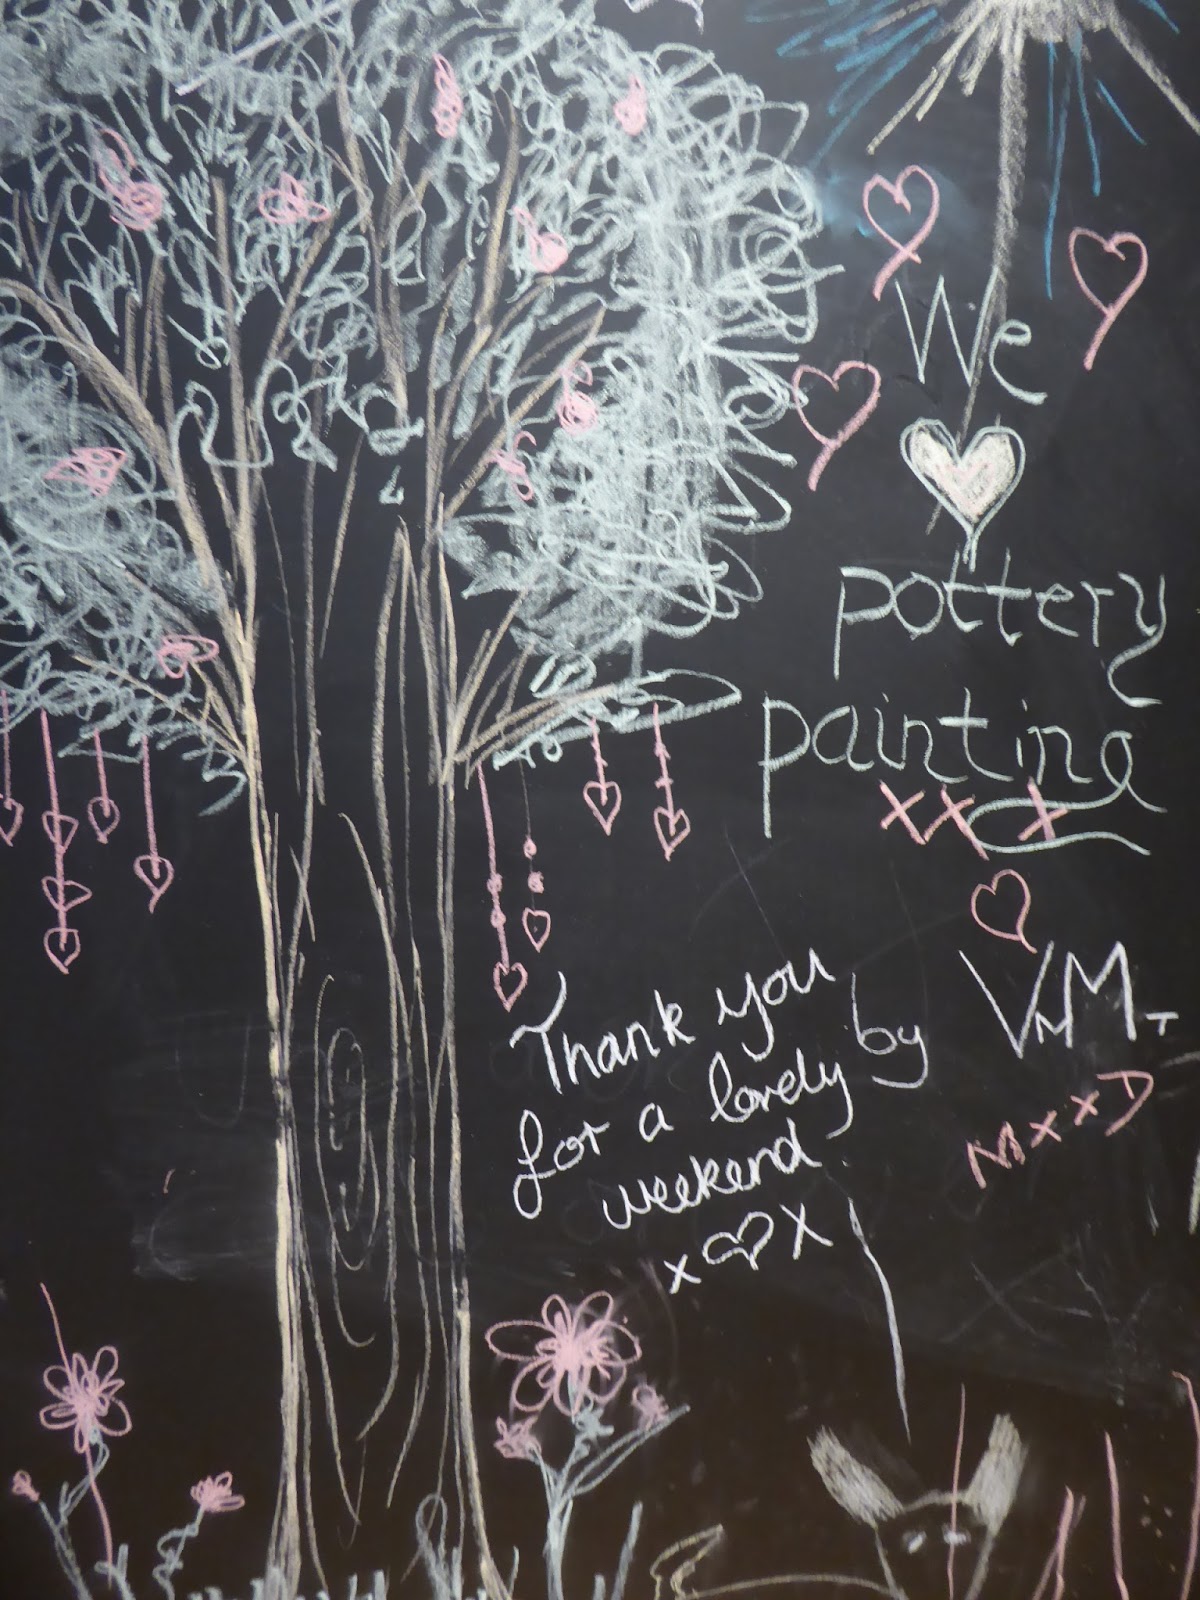 We
pottery
painting
xx x
Thank you
for a lovely
weekend
x♡X
by